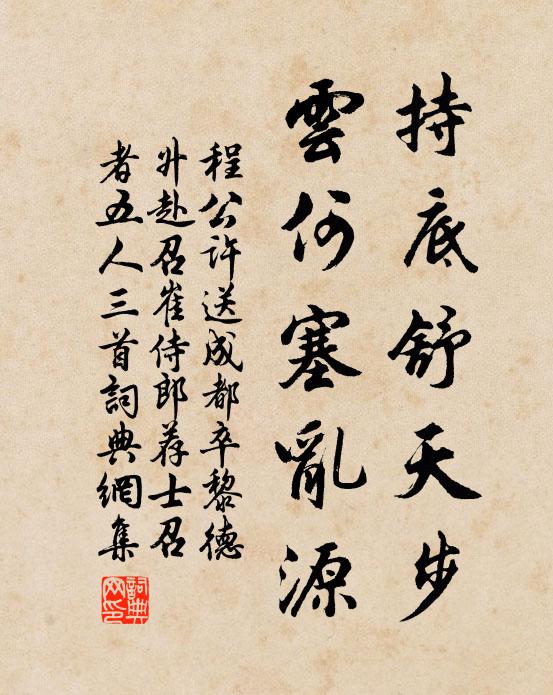 持底舒天步
雲何塞亂源
程公许送成都卒黎德
外赴召崔侍郎荐士召
者五人三首詞典網集
詞典网印